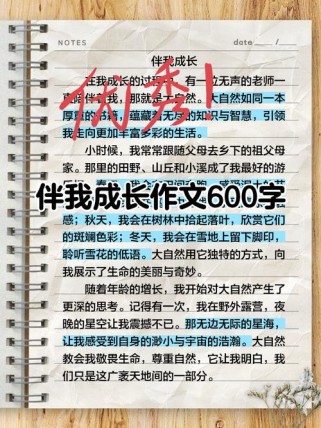 NOTES
date
伴我成长
在我成长的过程中，有一位无声的老师一
直陪伴着我，那就是大自然。大自然如同一本
厚重的书籍，蕴藏着无尽的知识与智慧，引领
我走向更加丰富多彩的生活。
优秀！
小时候，我常常跟随父母去乡下的祖父母
家。那里的田野、山丘和小溪成了我最好的游
伴我成长作文600字
感；秋天，我会在树林中拾起落叶，欣赏它们
的斑斓色彩；冬天，我会在雪地上留下脚印，
聆听雪花的低语。大自然用它独特的方式，向
我展示了生命的美丽与奇妙。
随着年龄的增长，我开始对大自然产生了
更深的思考。记得有一次，我在野外露营，夜
晚的星空让我震撼不已。那无边无际的星海，
让我感受到自身的渺小与宇宙的浩瀚。大自然
教会我敬畏生命，尊重自然，它让我明白，我
们只是这广袤天地间的一部分。